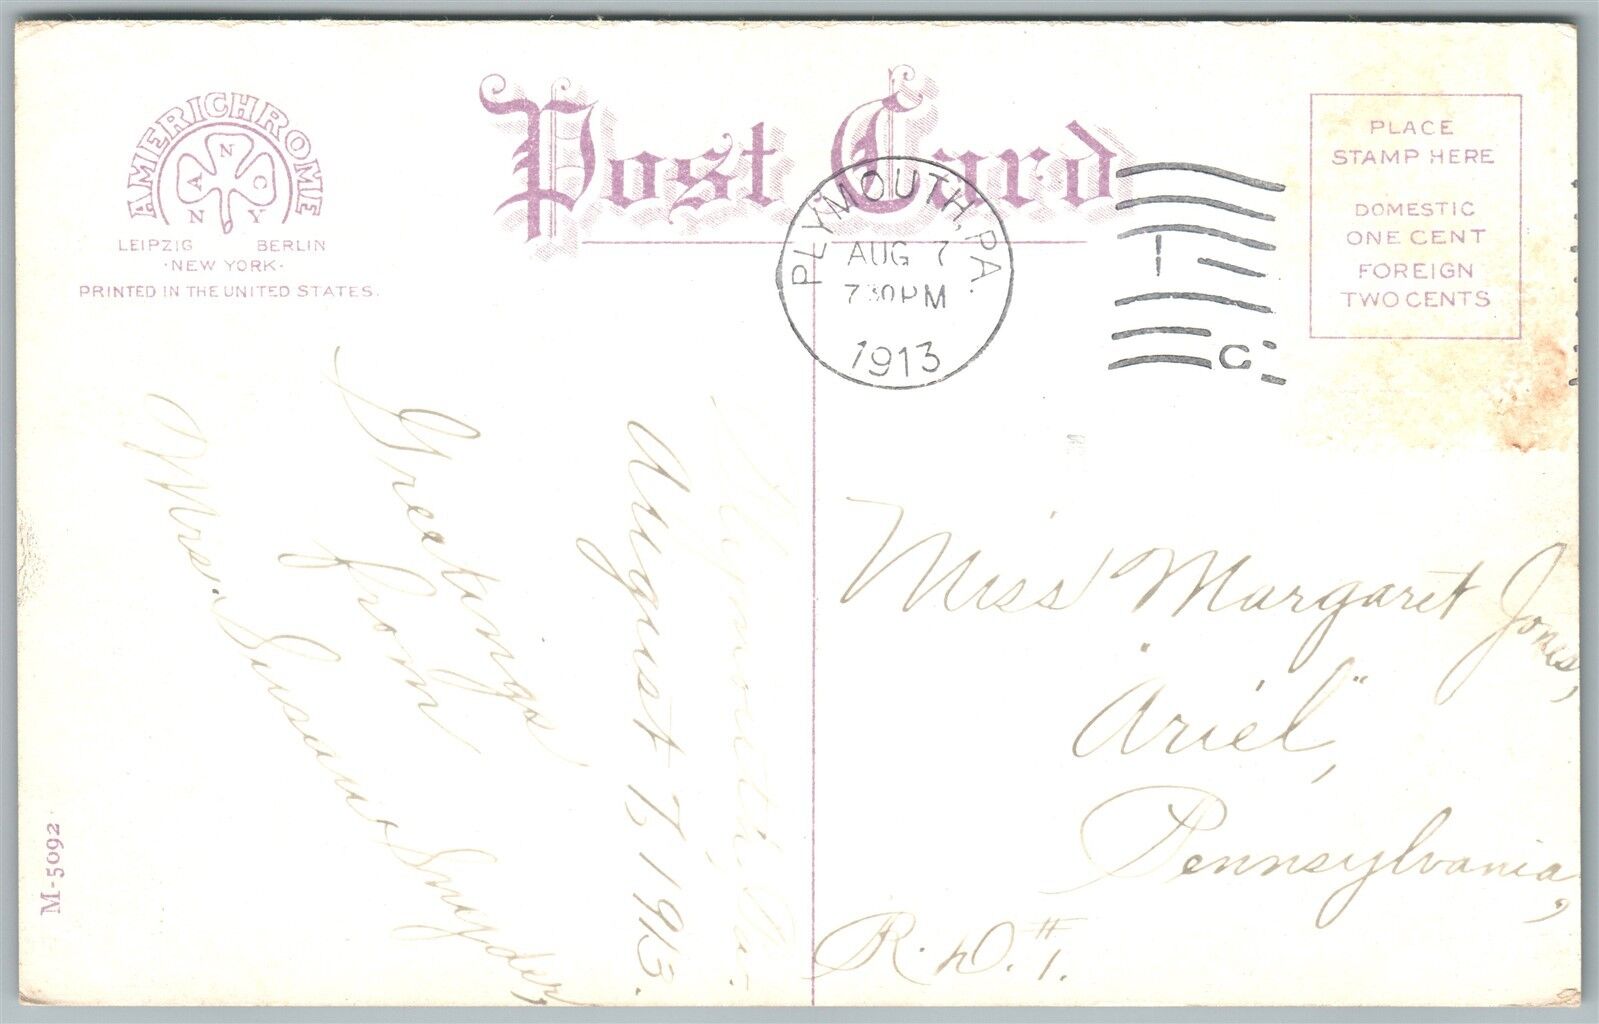 AMERICHROME
N
A C
N Y
LEIPZIG BERLIN
·NEW YORK·
PRINTED IN THE UNITED STATES.
Post Card
PLYMOUTH, PA.
AUG 7
7 30 PM
1913
PLACE
STAMP HERE
DOMESTIC
ONE CENT
FOREIGN
TWO CENTS
Plymouth, Pa.
August 7, 1913.
Greetings
from
Mrs. Snyder,
Miss Margaret Jones,
"Ariel",
Pennsylvania,
R.D. #1.
M-5092